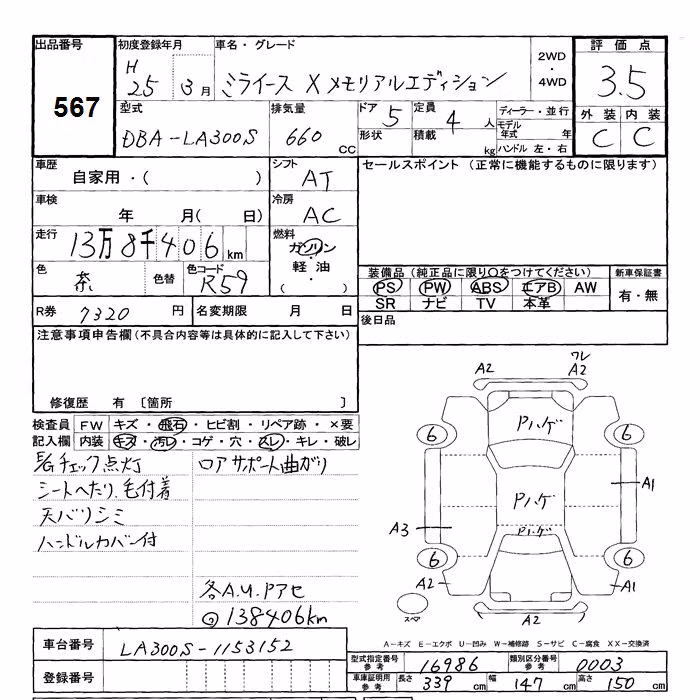 出品番号
567
初度登録年月
H
25 3月
車名・グレード
ミライース X メモリアルエディション
2WD
・
4WD
評価点
3.5
外装 内装
C C
型式
DBA-LA300S
排気量
660 CC
ドア 5
形状
定員 4 人
積載 kg
ディーラー・並行
モデル年式 年
ハンドル 左・右
車歴
自家用・( )
シフト
AT
セールスポイント (正常に機能するものに限ります)
車検
年 月( 日)
冷房
AC
走行
13万8千406km
燃料
ガソリン
・
軽油
・
( )
色
色替
色コード
R59
装備品 (純正品に限り○をつけてください)
新車保証書
PS PW ABS エアB AW
SR ナビ TV 本革
有・無
R券 7320 円
名変期限 月 日
後日品
注意事項申告欄(不具合内容等は具体的に記入して下さい)
修復歴 有 [箇所 ]
検査員記入欄
FW キズ・飛石・ヒビ割・リペア跡・×要
内装 キズ・汚レ・コゲ・穴・スレ・キレ・破レ
E/Gチェック点灯
ロアサポート曲がり
シートへたり、毛付着
天バリシミ
ハンドルカバー付
各A.U.Pアセ
138406km
A2
ワレ
A2
Pハゲ
6 6
A1
Pハゲ
A3
Pハゲ
6 6
A2 A1
A2
スペア
A-キズ E-エクボ U-凹み W-補修跡 S-サビ C-腐食 XX-交換済
車台番号
LA300S-1153152
登録番号
型式指定番号
参考
16986
類別区分番号
参考
0003
車庫証明用
参考
長さ 339 cm 幅 147 cm 高さ 150 cm